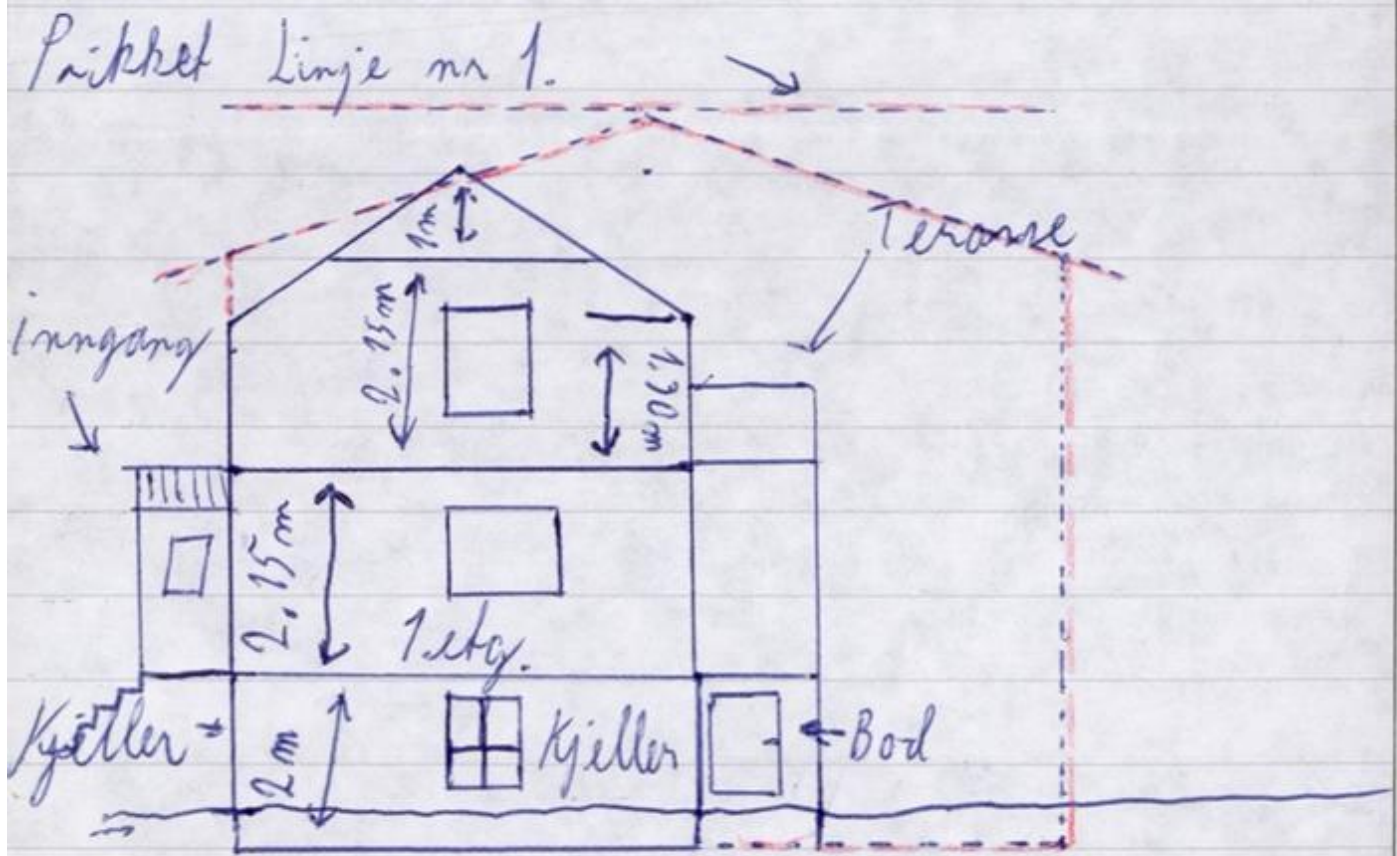 Prikket Linje nr 1.
Terasse
1m
Inngang
2.15m
1.30m
2.15m
1 etg.
Kjeller
2m
Kjeller
Bod